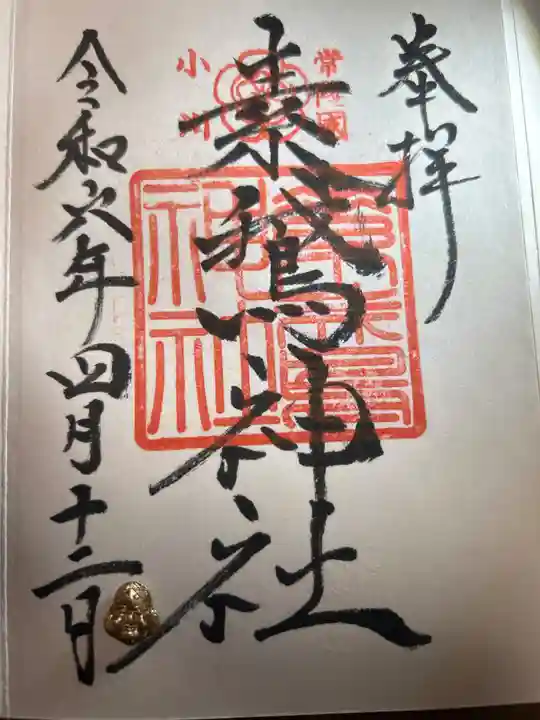 奉拝
常陸國
小川
素鵞神社
素鵞神社
令和六年四月十二日